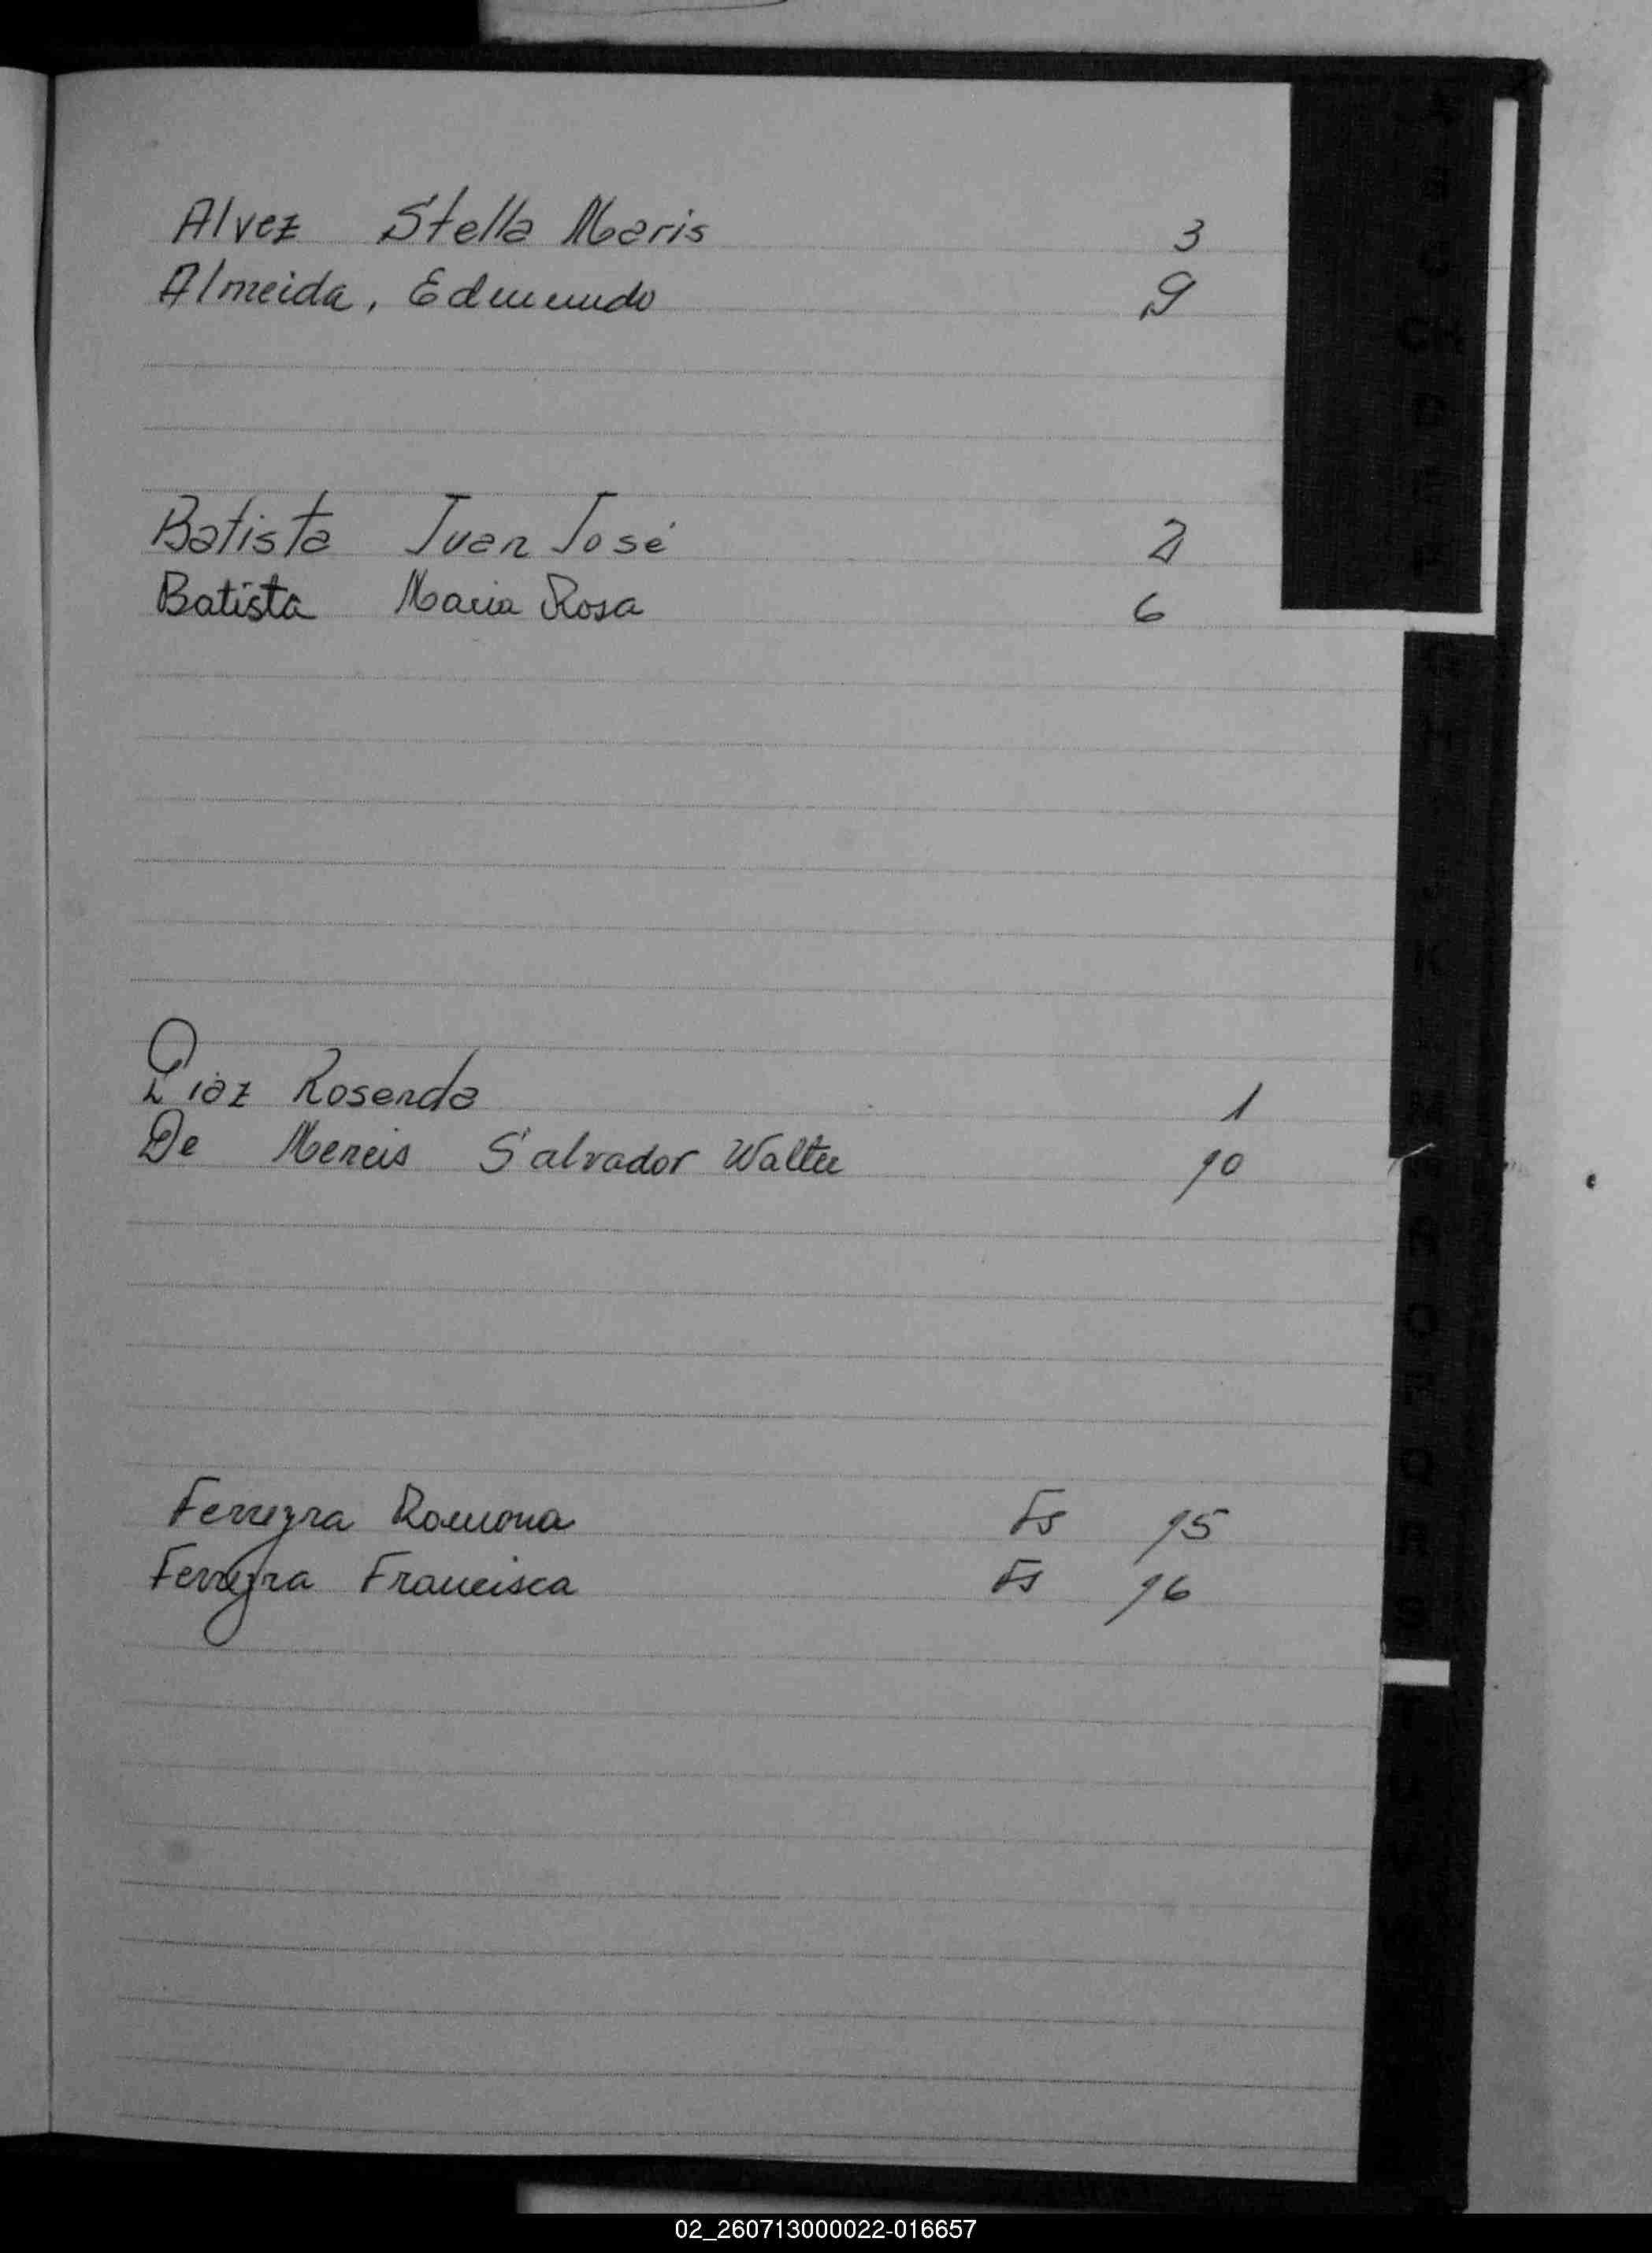 Alvez Stella Maris 3
Almeida, Edmundo 9
Batista Juan José 2
Batista Maria Rosa 6
Diaz Rosenda 1
De Salvador Walter 10
Ferreyra Ramona Fs 15
Ferreyra Francisca Fs 16
02_260713000022-016657